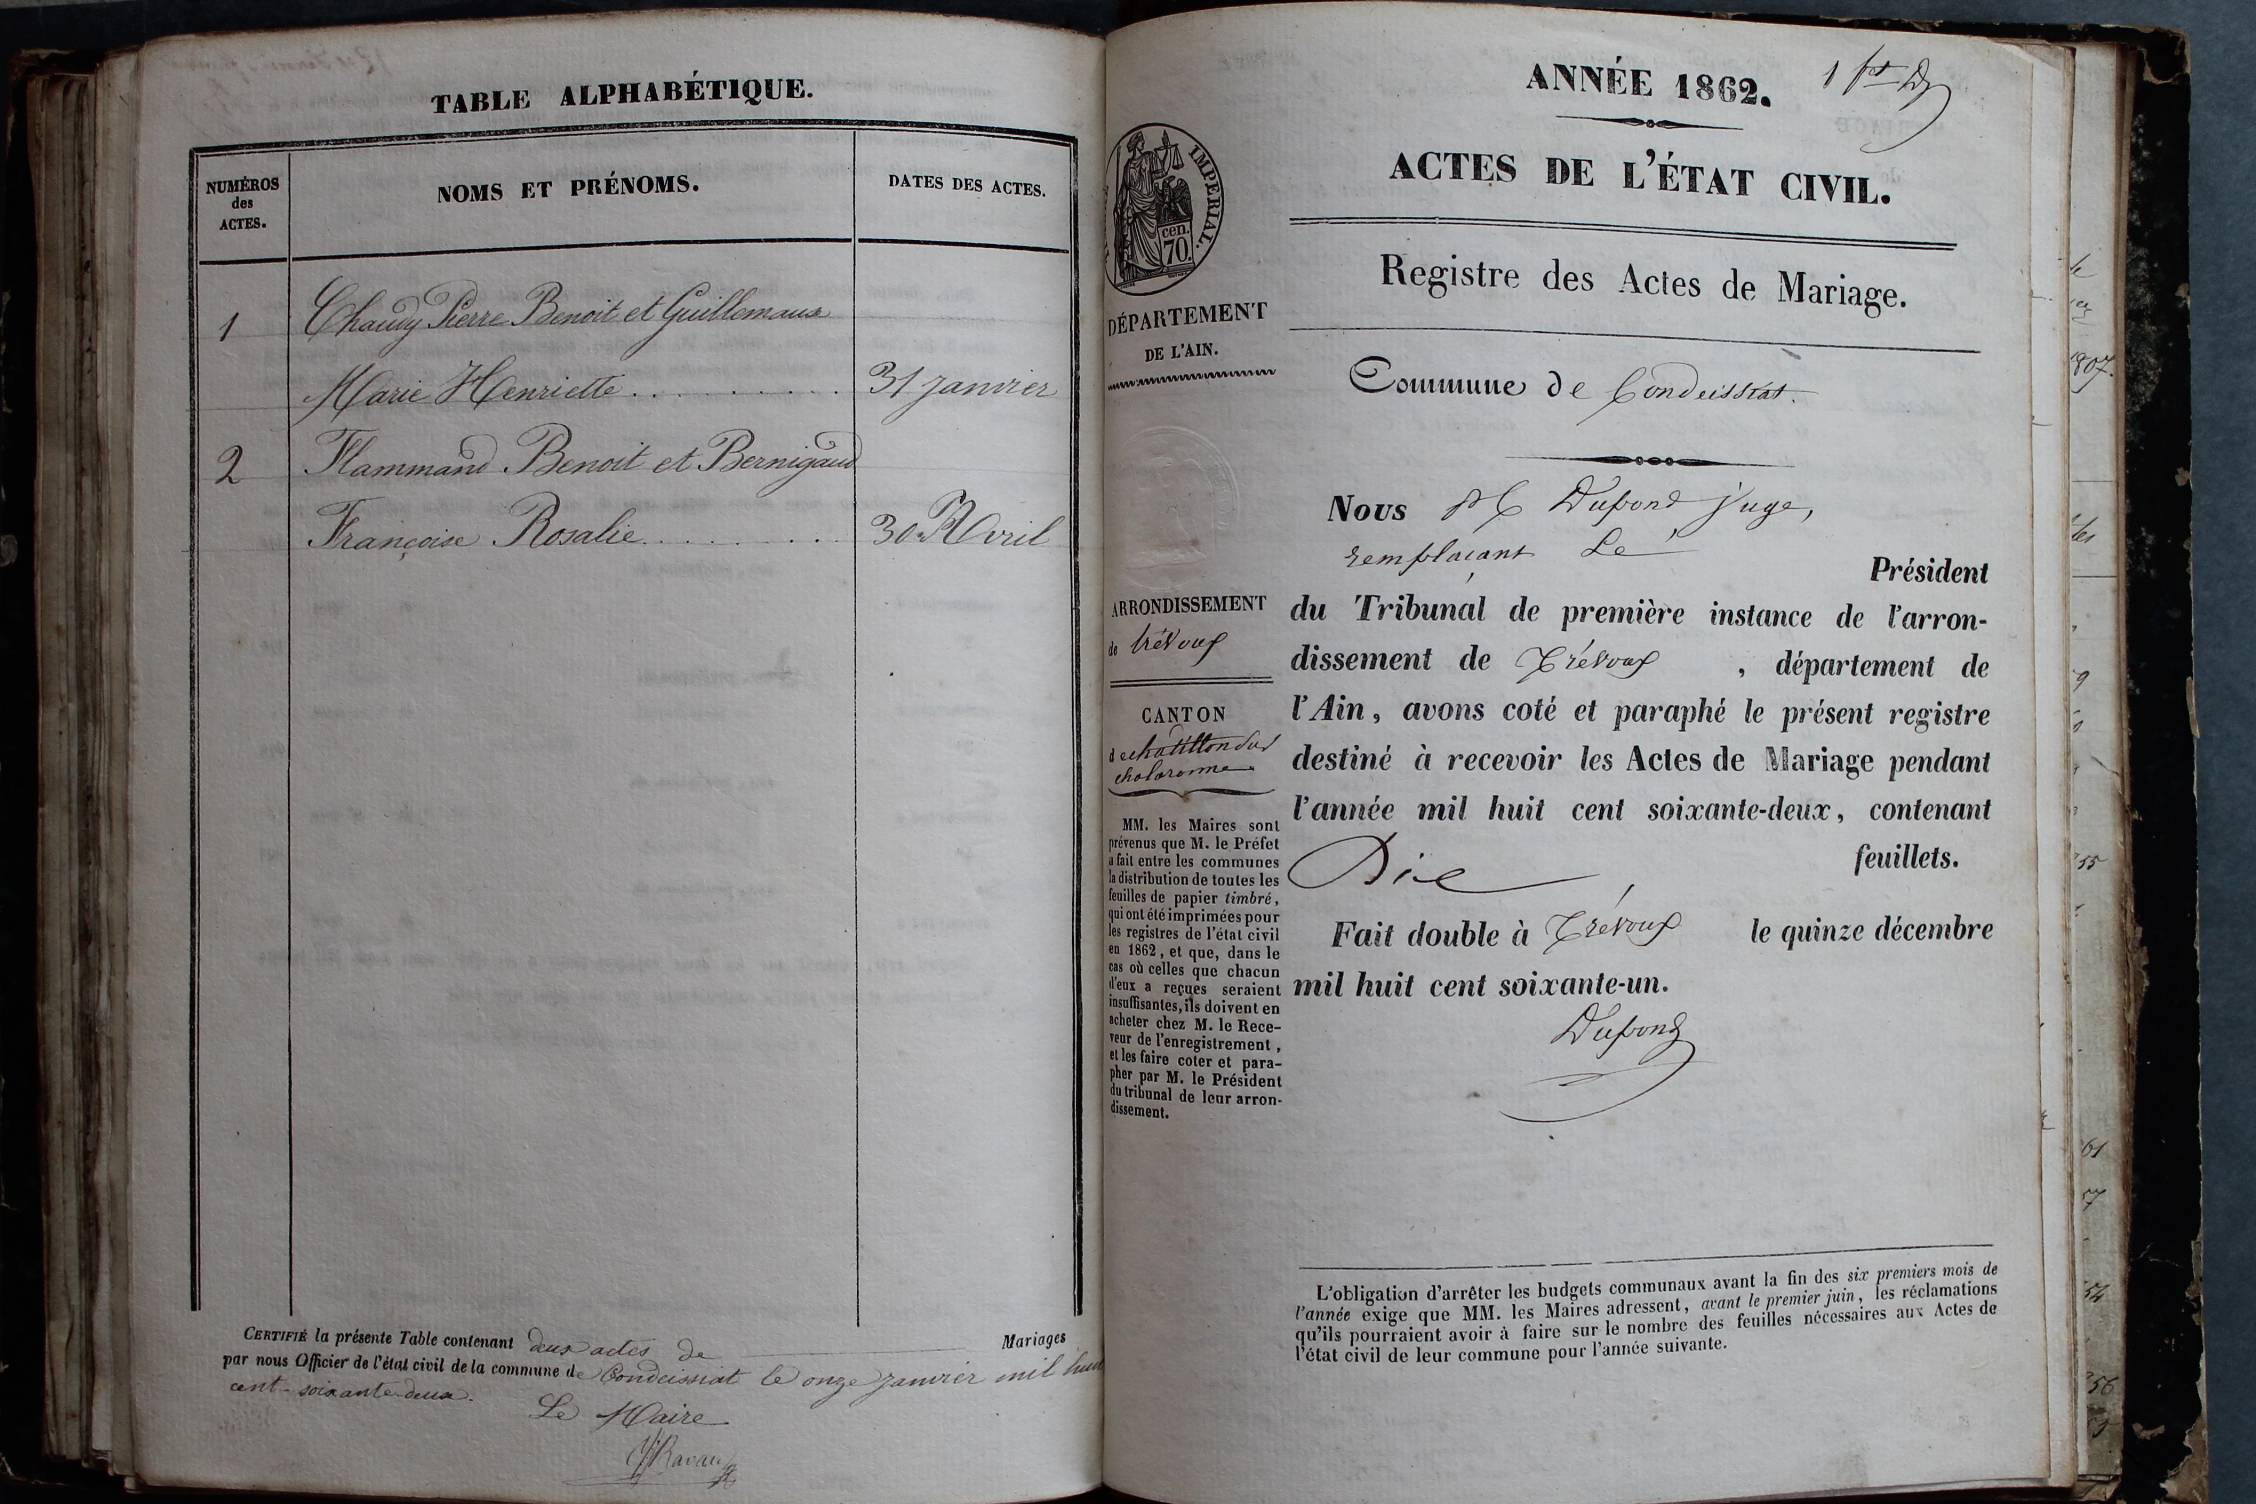 TABLE ALPHABÉTIQUE.
NUMÉROS
des
ACTES.
NOMS ET PRÉNOMS.
DATES DES ACTES.
1 Chaudy Pierre Benoit et Guillemaux
Marie Henriette . . . . . . . . . . 31 Janvier
2 Flammand Benoit et Bernigaud
Françoise Rosalie . . . . . . . . . 30 Avril
CERTIFIÉ la présente Table contenant deux actes de Mariages
par nous Officier de l'état civil de la commune de Condeissiat le onze janvier mil huit
cent-soixante-deux.
Le Maire
ANNÉE 1862.
ACTES DE L'ÉTAT CIVIL.
IMPERIAL.
cen.
70.
DÉPARTEMENT
DE L'AIN.
Registre des Actes de Mariage.
Commune de Condeissiat.
ARRONDISSEMENT
de trévoux
CANTON
de chatillon sur
chalaronne
MM. les Maires sont
prévenus que M. le Préfet
a fait entre les communes
la distribution de toutes les
feuilles de papier timbré,
qui ont été imprimées pour
les registres de l'état civil
en 1862, et que, dans le
cas où celles que chacun
d'eux a reçues seraient
insuffisantes, ils doivent en
acheter chez M. le Rece-
veur de l'enregistrement,
et les faire coter et para-
pher par M. le Président
du tribunal de leur arron-
dissement.
Nous Dupond juge,
remplaçant Le
Président
du Tribunal de première instance de l'arron-
dissement de Trévoux , département de
l'Ain, avons coté et paraphé le présent registre
destiné à recevoir les Actes de Mariage pendant
l'année mil huit cent soixante-deux, contenant
Dix feuillets.
Fait double à Trévoux le quinze décembre
mil huit cent soixante-un.
Dupond
L'obligation d'arrêter les budgets communaux avant la fin des six premiers mois de
l'année exige que MM. les Maires adressent, avant le premier juin, les réclamations
qu'ils pourraient avoir à faire sur le nombre des feuilles nécessaires aux Actes de
l'état civil de leur commune pour l'année suivante.